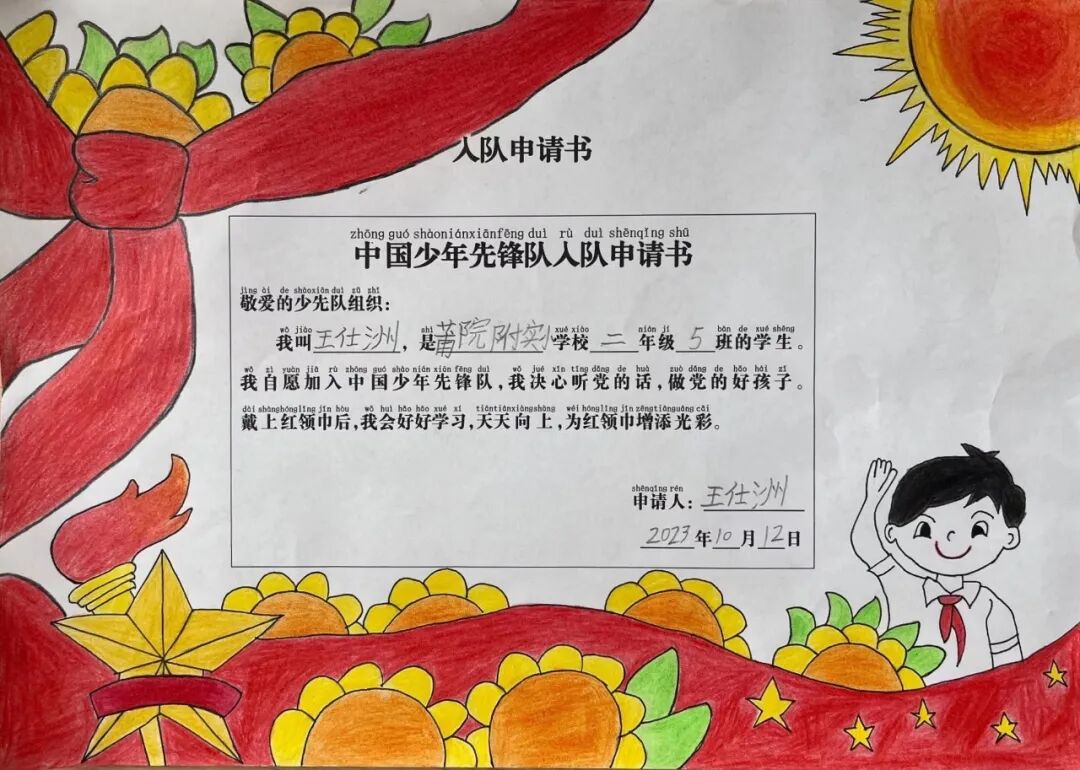 入队申请书
zhōng guó shàoniánxiānfēng duì rù duì shēnqǐng shū
中国少年先锋队入队申请书
jìng ài de shàoxiān duì zǔ zhī
敬爱的少先队组织：
wǒ jiào shì xué xiào nián jí bān de xué shēng
我叫王仕沙州，是莆院附实小学校二年级5班的学生。
wǒ zì yuàn jiā rù zhōng guó shào nián xiān fēng duì wǒ jué xīn tīng dǎng de huà zuò dǎng de hǎo hái zǐ
我自愿加入中国少年先锋队，我决心听党的话，做党的好孩子。
dài shànghónglǐng jīn hòu wǒ huì hǎo hǎo xué xí tiāntiānxiàngshàng wéi hónglǐng jīn zēngtiānguāng cǎi
戴上红领巾后，我会好好学习，天天向上，为红领巾增添光彩。
shēnqǐng rén
申请人：王仕沙州
2023年10月12日